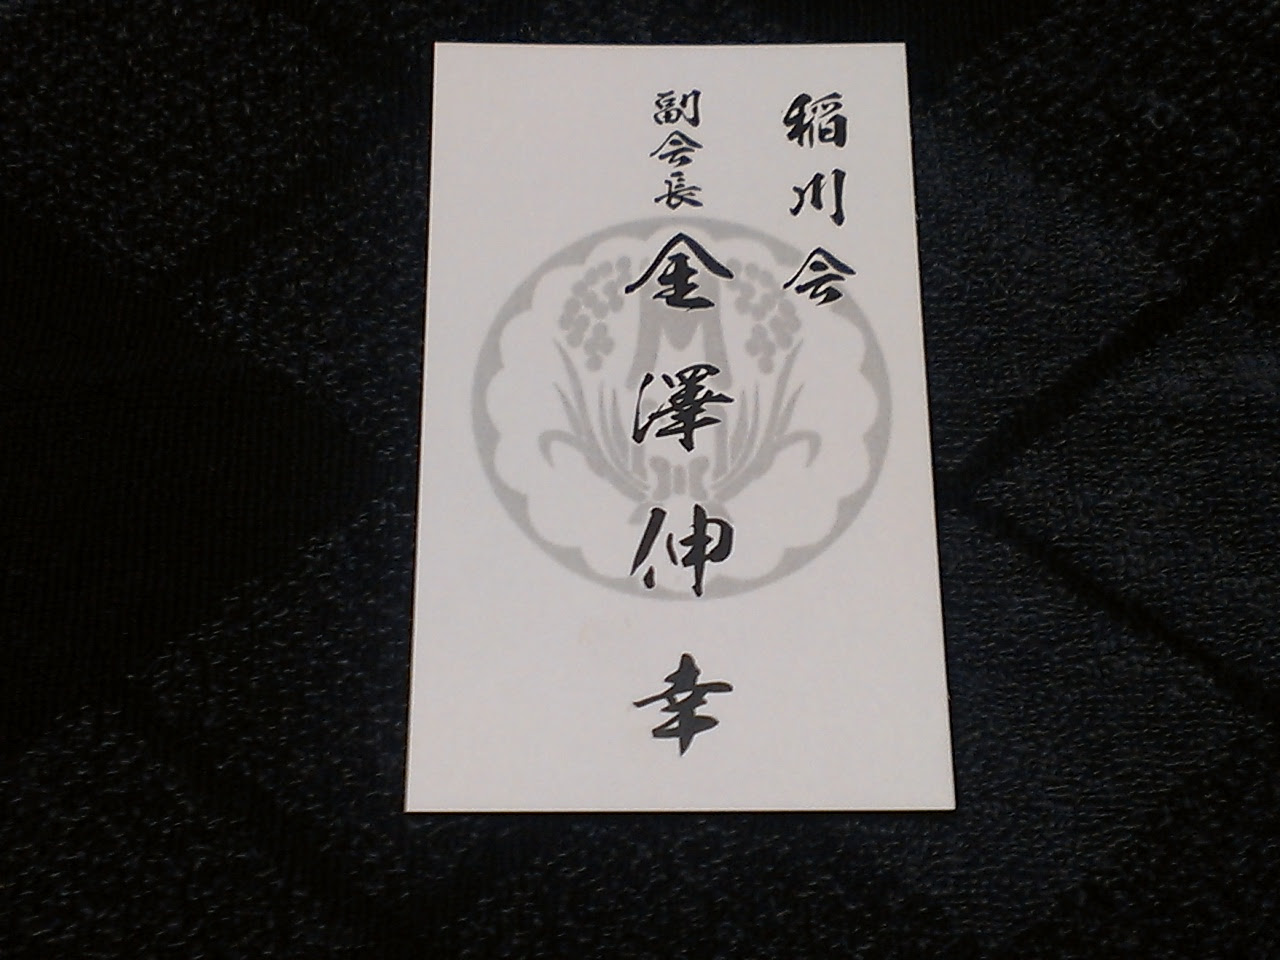 稲川会
副会長 金澤伸幸